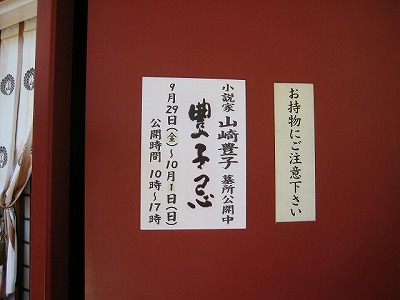 小説家 山崎豊子 墓所公開中
豊子忌
9月29日(金)~10月1日(日)
公開時間 10時~17時
お持物にご注意下さい